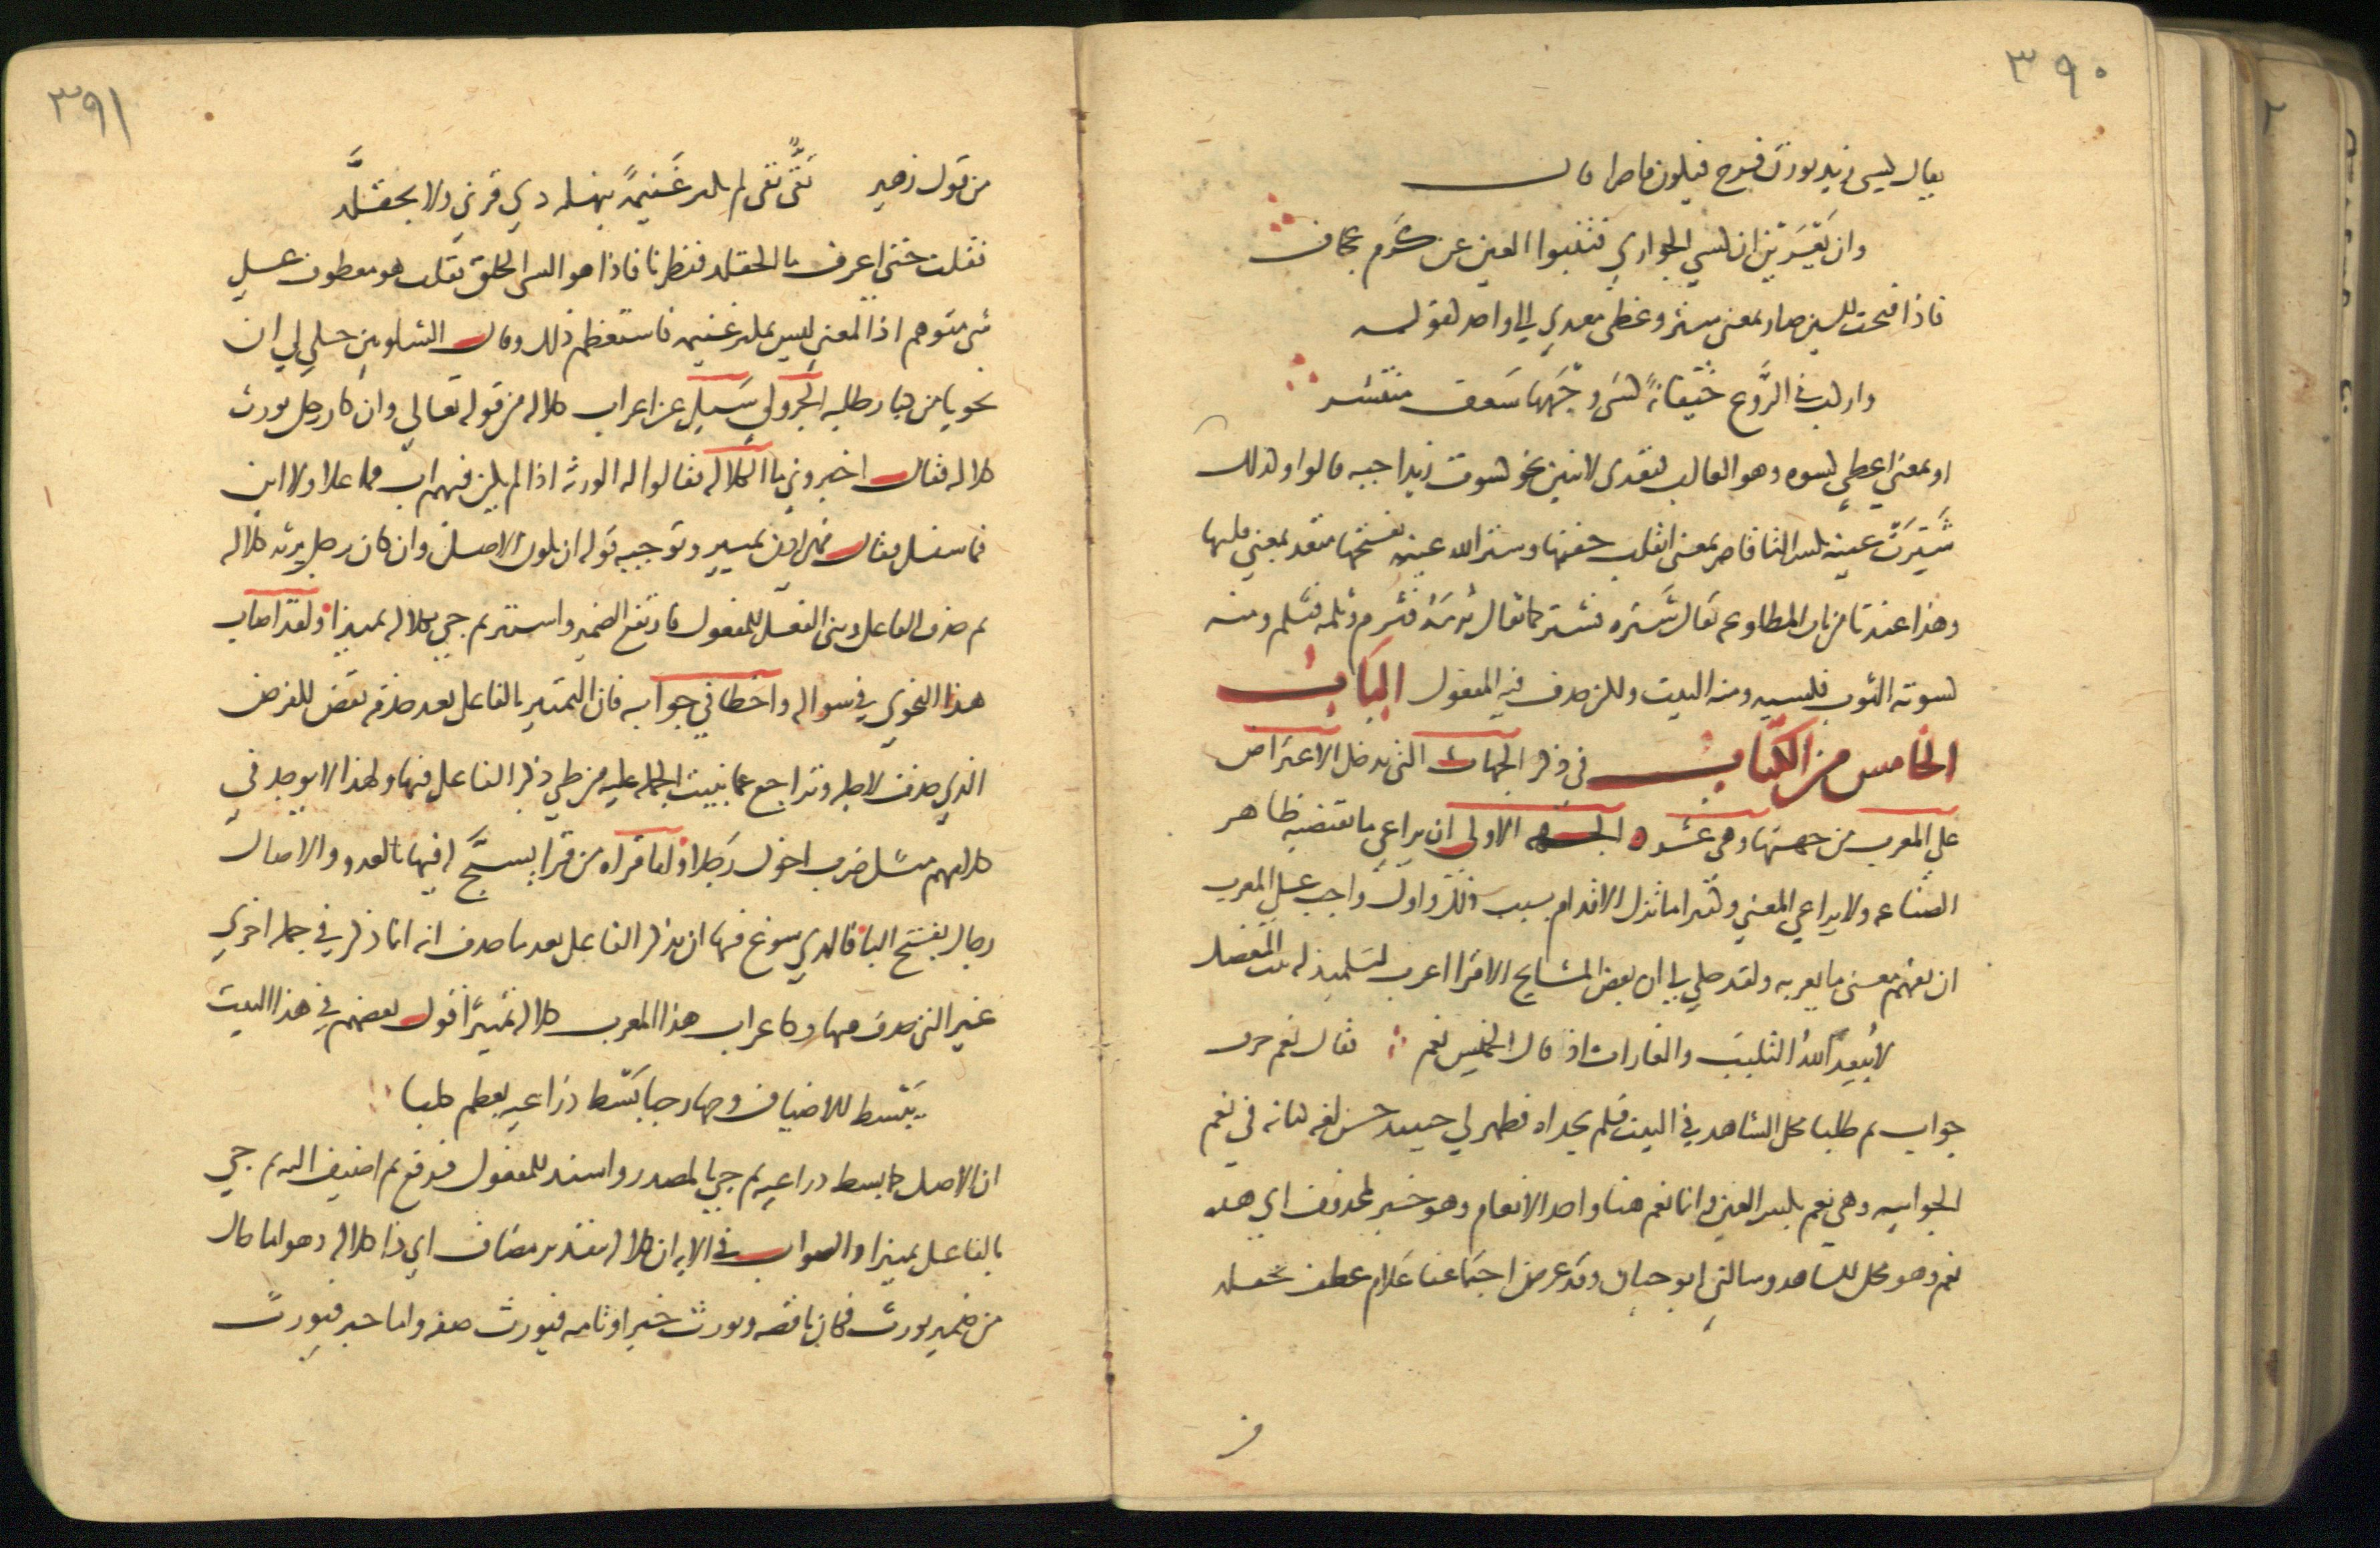 ٣٩٠
يقال كسي زيد بوزن فرح فيكون قاصرا قال
وان يعرين ان كسي الجواري فتنبوا العين عن كرم عجاف
فاذا فتحت السين صار بمعنى ستر وغطى معدي الى واحد لقوله
واركب في الروع خيفانة كسى وجهها سعف منتشر
او بمعنى اعطى كسوة وهو الغالب فتعدى لاثنين نحو كسوت زيدا جبة قالوا وكذلك
شترت عينه بكسر التا قاصر بمعنى انقلب جفنها وشتر الله عينه بفتحها متعد بمعنى قلبها
وهذا عندنا من باب المطاوعة يقال شتره فشتر كما يقال ثرمه فثرم وثلمه فثلم ومنه
كسوته الثوب فكسيه ومنه البيت ولكن حذف فيه المفعول الباب
الخامس من الكتاب في ذكر الجهات التي يدخل الاعتراض
على المعرب من جهتها وهي عشرة الجهة الاولى ان يراعي ما يقتضيه ظاهر
الصناعة ولا يراعي المعنى وكثيرا ما تزل الاقدام بسبب ذلك واول واجب على المعرب
ان يفهم معنى ما يعربه ولقد حكي لي ان بعض المشايخ الاقرا اعرب لتلميذ له بيت المفصل
لا يبعد الله التلبب والغارات اذ قال الخميس نعم فقال نعم حرف
جواب ثم طلبا محل الشاهد في البيت فلم يجداه فظهر لي حينئذ حسن لغة كنانة في نعم
الجوابية وهي نعم بكسر العين وانما نعم هنا واحد الانعام وهو خبر لمحذوف اي هذه
نعم وهو محل الشاهد وسالني ابو حيان وقد عرض اجتماعنا علام عطف بحقلد
من
٣٩١
من قول زهير تقي نقي لم يكثر غنيمة بنهكة ذي قربى ولا بحقلد
فقلت حتى اعرف ما الحقلد فنظرنا فاذا هو السى الخلق فقلت هو معطوف على
شى متوهم اذ المعنى ليس بمكثر غنيمة فاستعظم ذلك وقال الشلوبين حكي لي ان
نحويا من كبار طلبة الجزولي سيل عن اعراب كلالة من قوله تعالى وان كان رجل يورث
كلالة فقال اخبروني ما الكلالة فقالوا له الورثة اذا لم يكن فيهم اب فما علا ولا ابن
فما سفل فقال فهي اذن تمييز وتوجيه قوله ان يكون الاصل وان كان رجل يرثه كلالة
ثم حذف الفاعل وبنى الفعل للمفعول فارتفع الضمير واستتر ثم جي بكلالة تمييزا ولقد اصاب
هذا النحوي في سواله واخطا في جوابه فان التمييز بالفاعل بعد حذفه نقض للغرض
الذي حذف لاجله وتراجع عما بنيت الجملة عليه من طي ذكر الفاعل فيها ولهذا لا يوجد في
كلامهم مثل ضرب اخوك رجلا واما قراة من قرا يسبح له فيها بالغدو والاصال
رجال بفتح البا فالذي سوغ فيها ان يذكر الفاعل بعد ما حذف انه انما ذكر في جملة اخرى
غير التي حذف منها وكاعراب هذا المعرب كلالة تمييزا قول بعضهم في هذا البيت
يبسط للاضياف وجها رحبا بسط ذراعيه لعظم كلبا
ان الاصل كما بسط ذراعيه ثم جي بالمصدر واسند للمفعول فرفع ثم اضيف اليه ثم جي
بالفاعل تمييزا والصواب في الاية ان كلالة بتقدير مضاف اي ذا كلالة وهو اما حال
من ضمير يورث فكان ناقصة ويورث خبر او تامة فيورث صفة واما خبر فيورث